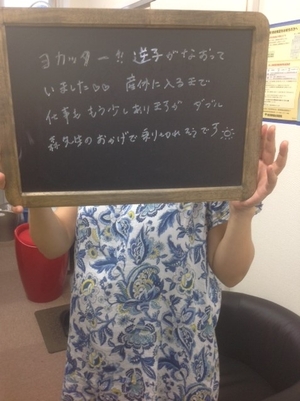 ヨカッター!! 逆子がなおって
いました♡♡ 産休に入るまで
仕事ももう少しありますが ダブル
森先生のおかげで乗りきれそうです